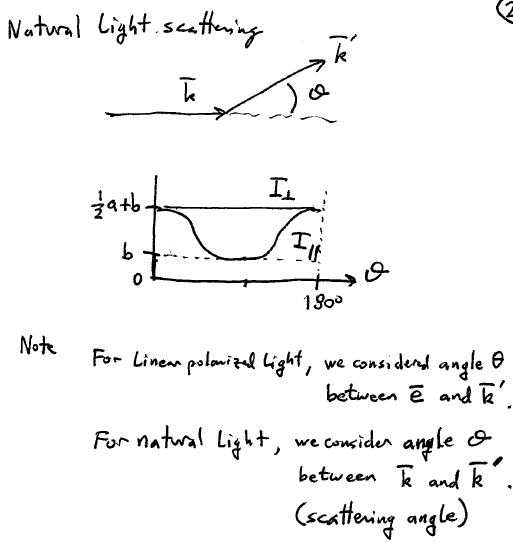 ②
Natural Light scattering
k̄
k̄′
ϑ
½a+b
I⊥
b
I∥
0
180°
ϑ
Note
For linear polarized light, we considered angle θ
between ē and k̄′.
For natural light, we consider angle ϑ
between k̄ and k̄′.
(scattering angle)